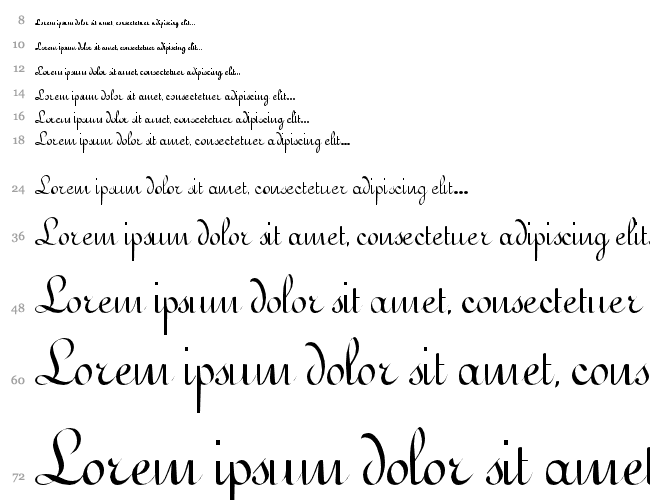 8 Lorem ipsum dolor sit amet consectetuer adipiscing elit...
10 Lorem ipsum dolor sit amet, consectetuer adipiscing elit...
12 Lorem ipsum dolor sit amet consectetuer adipiscing elit...
14 Lorem ipsum dolor sit amet, consectetuer adipiscing elit...
16 Lorem ipsum dolor sit amet, consectetuer adipiscing elit...
18 Lorem ipsum dolor sit amet, consectetuer adipiscing elit...
24 Lorem ipsum dolor sit amet, consectetuer adipiscing elit...
36 Lorem ipsum dolor sit amet, consectetuer adipiscing elit.
48 Lorem ipsum dolor sit amet, consectetuer
60 Lorem ipsum dolor sit amet, cons
72 Lorem ipsum dolor sit amet